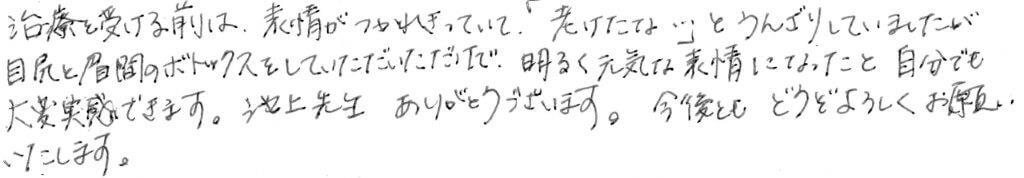 治療を受ける前は、表情がつかれきっていて、「老けたな…」とうんざりしていましたが
目尻と眉間のボトックスをしていただいただけで、明るく元気な表情になったと自分でも
大変実感できます。池上先生 ありがとうございます。今後とも どうぞよろしくお願い
いたします。